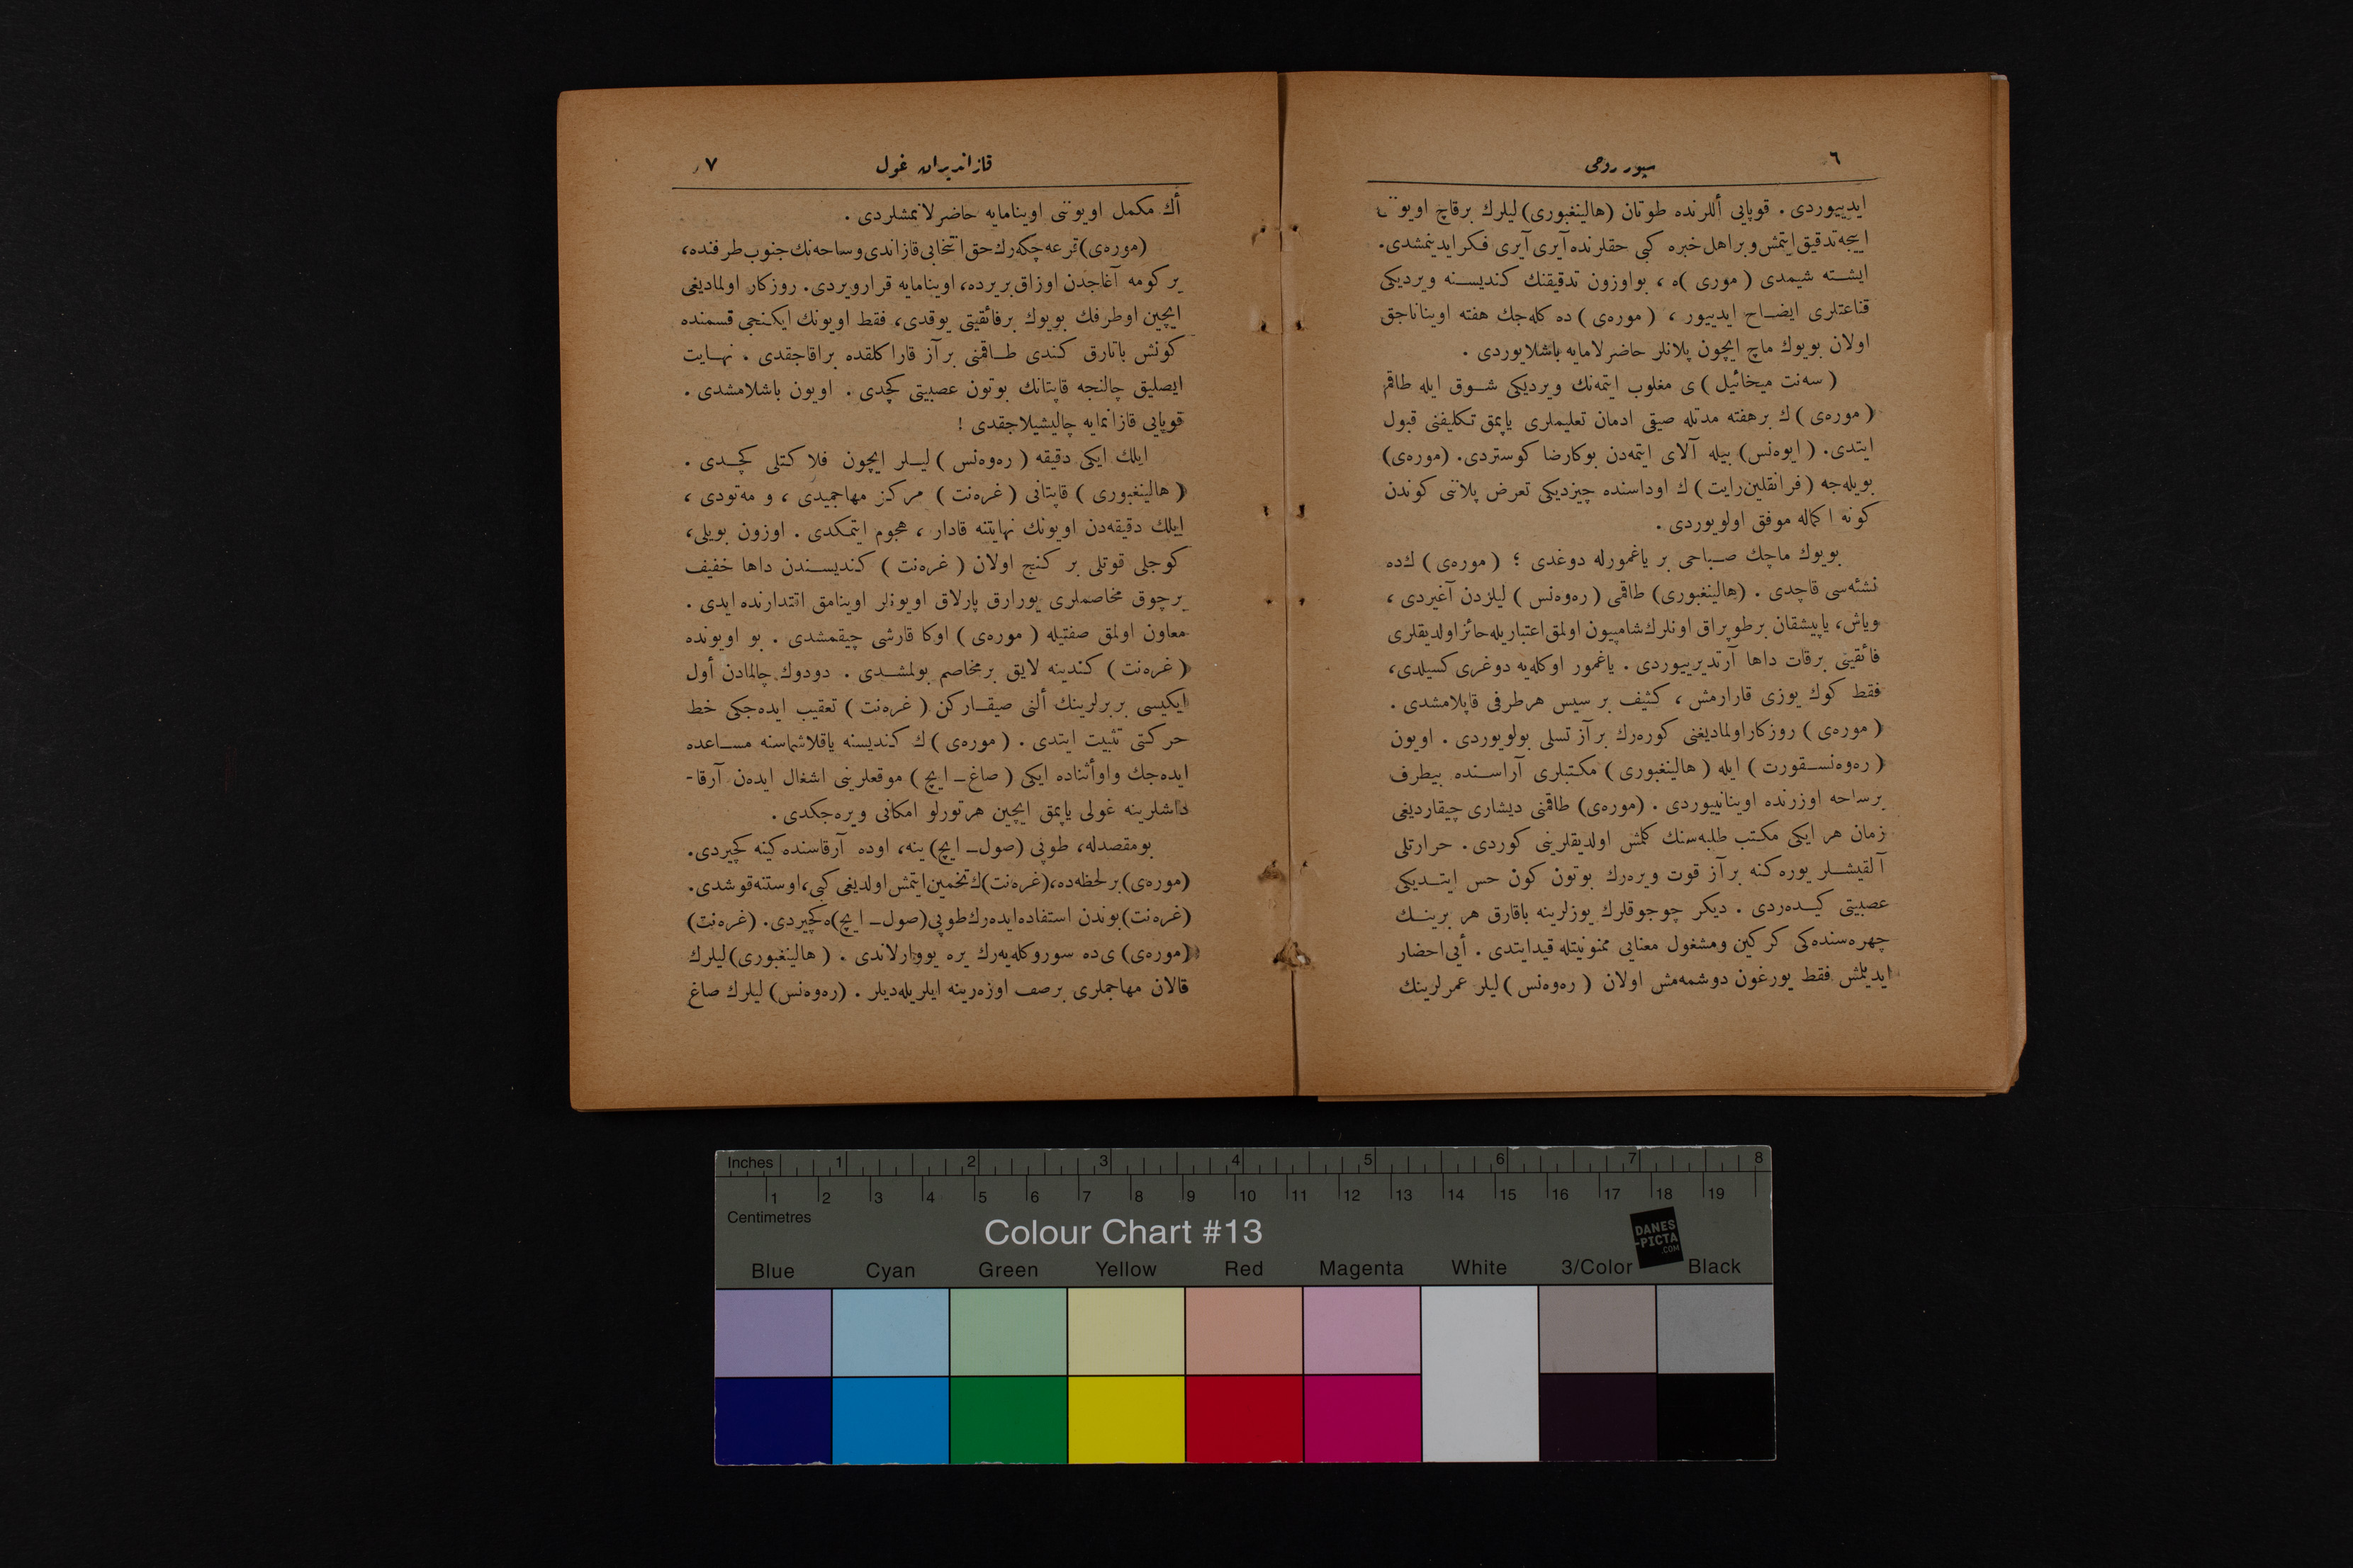 ٦
سپور روحی
ایدییوردی . قوپایی أللرنده طوتان (هالینغبوری) لیلرك برقاچ اویوننی
اییجه تدقیق ایتمش وبر اهل خبره کبی حقلرنده آیری آیری فکر ایدینمشدی.
ایشته شیمدی ( موری )ه ، بواوزون تدقیقنك کندیسنه ویردیکی
قناعتلری ایضاح ایدییور ، ( مورەی ) ده کله‌جك هفته اویناناجق
اولان بویوك ماچ ایچون پلانلر حاضرلامایه باشلایوردی .
( سەنت میخائیل ) ی مغلوب ایتمه‌نك ویردیکی شوق ایله طاقم
( مورەی ) ك برهفته مدتله صیقی ادمان تعلیملری یاپمق تکلیفنی قبول
ایتدی. ( ایوەنس) بیله آلای ایتمه‌دن بوکارضا کوستردی. (مورەی)
بویله‌جه (فرانقلین‌رایت) ك اوداسنده چیزدیکی تعرض پلاننی کوندن
کونه اکماله موفق اولویوردی .
بویوك ماچك صباحی بر یاغمورله دوغدی ؛ ( مورەی ) ك‌ده
نشئه‌سی قاچدی . (هالینغبوری) طاقمی ( رەوەنس ) لیلردن آغیردی ،
ویاش، یاپیشقان برطوپراق اونلرك شامپیون اولمق اعتباریله حائز اولدیقلری
فائقینی برقات داها آرتدیرییوردی . یاغمور اوکله‌یه دوغری کسیلدی،
فقط کوك یوزی قارارمش ، کثیف بر سیس هرطرفی قاپلامشدی .
( مورەی ) روزکار اولمادیغنی کوره‌رك برآز تسلی بولویوردی . اویون
( رەوەنسقورت ) ایله ( هالینغبوری ) مکتبلری آراسنده بیطرف
برساحه اوزرنده اوینانییوردی . (مورەی) طاقمنی دیشاری چیقاردیغی
زمان هر ایکی مکتب طلبه‌سنك کلمش اولدیقلرینی کوردی . حرارتلی
آلقیشلر یوره‌کنه برآز قوت ویره‌رك بوتون کون حس ایتدیکی
عصبیتی کیده‌ردی . دیکر چوجوقلرك یوزلرینه باقارق هر برینك
چهره‌سنده‌کی کرکین ومشغول معنایی ممنونیتله قیدایتدی . أیی احضار
ایدیلمش فقط یورغون دوشمه‌مش اولان ( رەوەنس ) لیلر عمرلرینك
قازاندیران غول
٧
أك مکمل اویوننی اوینامایه حاضرلانمشلردی .
(مورەی) قرعه چکه‌رك حق انتخابی قازاندی وساحه‌نك جنوب طرفنده،
بر کومه آغاجدن اوزاق بریرده، اوینامایه قرارویردی. روزکار اولمادیغی
ایچین اوطرفك بویوك برفائقیتی یوقدی، فقط اویونك ایکنجی قسمنده
کونش باتارق کندی طاقمنی برآز قاراکلقده براقاجقدی . نهایت
ایصلیق چالنجه قاپتانك بوتون عصبیتی کچدی . اویون باشلامشدی .
قوپایی قازانمایه چالیشیلاجقدی !
ایلك ایکی دقیقه ( رەوەنس ) لیلر ایچون فلاکتلی کچدی .
( هالینغبوری ) قاپتانی ( غرەنت ) مرکز مهاجمیدی ، و مه‌تودی ،
ایلك دقیقه‌دن اویونك نهایتنه قادار ، هجوم ایتمکدی . اوزون بویلی،
کوجلی قوتلی بر کنج اولان ( غرەنت ) کندیسندن داها خفیف
برچوق مخاصملری یورارق پارلاق اویونلر اوینامق اقتدارنده ایدی .
معاون اولمق صفتیله ( مورەی ) اوکا قارشی چیقمشدی . بو اویونده
( غرەنت ) کندینه لایق برمخاصم بولمشدی . دودوك چالمادن أول
ایکیسی بربرلرینك ألنی صیقارکن ( غرەنت ) تعقیب ایده‌جکی خط
حرکتی تثبیت ایتدی . ( مورەی ) ك کندیسنه یاقلاشماسنه مساعده
ایده‌جك واوأثناده ایکی ( صاغ ـ ایچ ) موقعلرینی اشغال ایده‌ن آرقا-
داشلرینه غولی یاپمق ایچین هرتورلو امکانی ویره‌جکدی .
بومقصدله، طوپی (صول ـ ایچ) ینه، اوده آرقاسنده‌کینه کچیردی.
(مورەی) برلحظه‌ده، (غرەنت)ك تخمین ایتمش اولدیغی کبی، اوستنه قوشدی.
(غرەنت) بوندن استفاده ایده‌رك طوپی (صول ـ ایچ)ه کچیردی. (غرەنت)
(مورەی) ی‌ده سوروکله‌یه‌رك یره یووارلاندی . ( هالینغبوری) لیلرك
قالان مهاجملری برصف اوزه‌رینه ایلریله‌دیلر . (رەوەنس) لیلرك صاغ
Inches 1 2 3 4 5 6 7 8
1 2 3 4 5 6 7 8 9 10 11 12 13 14 15 16 17 18 19
Centimetres
Colour Chart #13
DANES
-PICTA
.COM
Blue Cyan Green Yellow Red Magenta White 3/Color Black